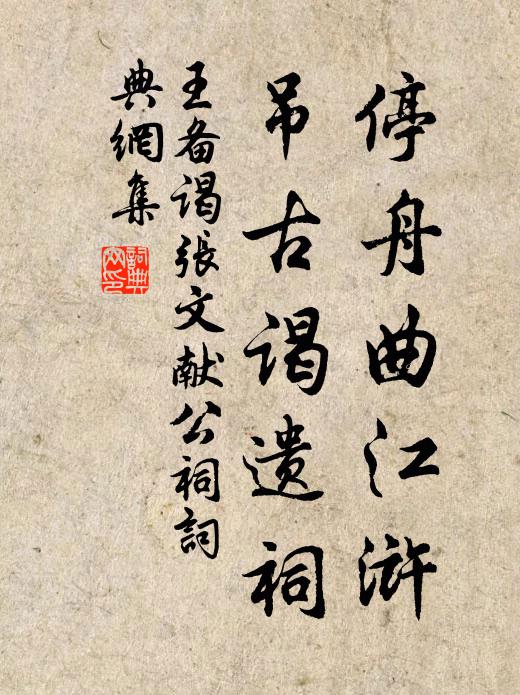 停舟曲江浒
吊古谒遗祠
王备谒張文献公祠詞
典網集
詞典网印